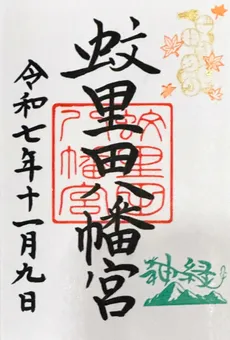 蚊里田八幡宮
令和七年十一月九日
蚊里田八幡宮
神経